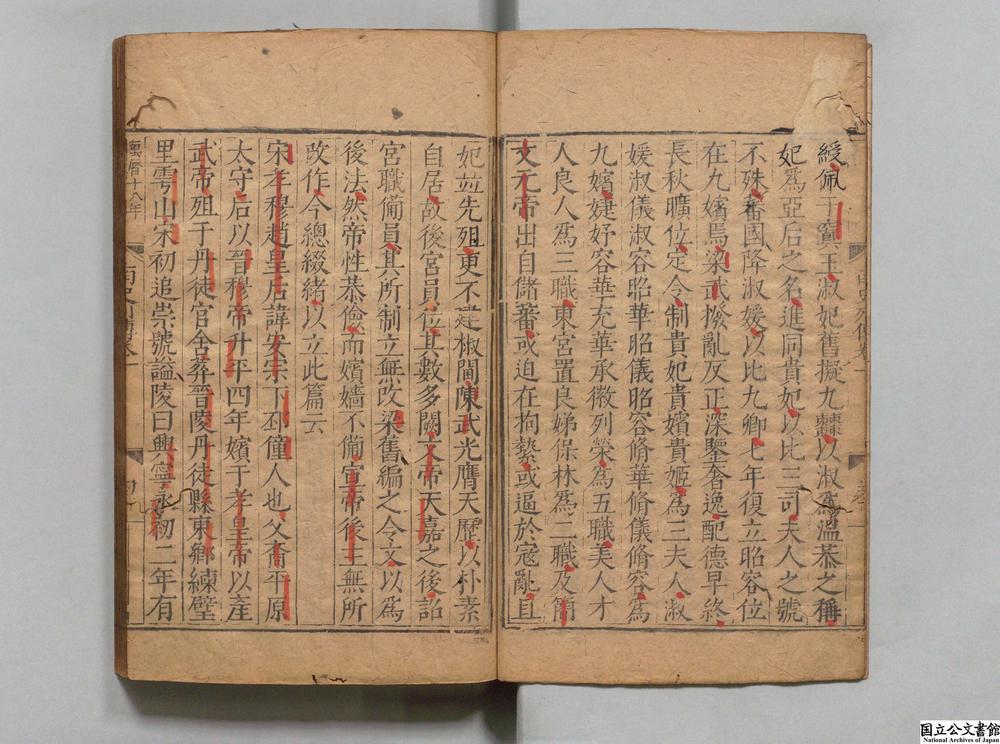 綬佩于窴王淑妃舊擬九棘以淑爲溫恭之稱
妃爲亞后之名進同貴妃以比三司夫人之號
不殊蕃國降淑媛以比九卿七年復立昭容位
在九嬪焉梁武撥亂反正深鑒奢逸配德早終
長秋曠位定令制貴妃貴嬪貴姬爲三夫人淑
媛淑儀淑容昭華昭儀昭容脩華脩儀脩容爲
九嬪婕妤容華充華承徽列榮爲五職美人才
人良人爲三職東宮置良娣保林爲二職及簡
文元帝出自儲蕃或迫在拘縶或逼於寇亂且
妃並先殂更不建椒閫陳武光膺天歷以朴素
自居故後宮員位其數多闕文帝天嘉之後詔
宮職備員其所制立無改梁舊編之令文以爲
後法然帝性恭儉而嬪嬙不備宣帝後主無所
改作今總綴緒以立此篇云
宋孝穆趙皇后諱安宗下邳僮人也父裔平原
太守后以晉穆帝升平四年嬪于孝皇帝以産
武帝殂于丹徒官舍葬晉陵丹徒縣東鄉練璧
里雩山宋初追崇號謚陵曰興寧永初二年有
萬曆十八年
国立公文書館
National Archives of Japan